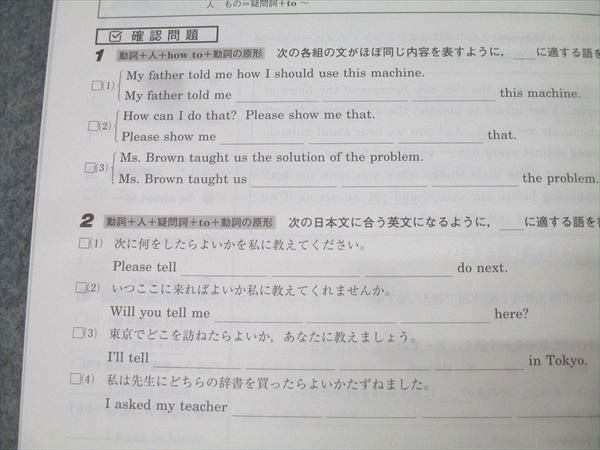 人 もの=疑問詞+to ～
確認問題
1 動詞+人+how to+動詞の原形 次の各組の文がほぼ同じ内容を表すように，＿＿に適する語を
□(1) My father told me how I should use this machine.
My father told me ＿＿ ＿＿ ＿＿ this machine.
□(2) How can I do that? Please show me that.
Please show me ＿＿ ＿＿ ＿＿ that.
□(3) Ms. Brown taught us the solution of the problem.
Ms. Brown taught us ＿＿ ＿＿ ＿＿ the problem.
2 動詞+人+疑問詞+to+動詞の原形 次の日本文に合う英文になるように，＿＿に適する語を
□(1) 次に何をしたらよいかを私に教えてください。
Please tell ＿＿ ＿＿ ＿＿ do next.
□(2) いつここに来ればよいか私に教えてくれませんか。
Will you tell me ＿＿ ＿＿ ＿＿ here?
□(3) 東京でどこを訪ねたらよいか，あなたに教えましょう。
I'll tell ＿＿ ＿＿ ＿＿ ＿＿ in Tokyo.
□(4) 私は先生にどちらの辞書を買ったらよいかたずねました。
I asked my teacher ＿＿ ＿＿ ＿＿ ＿＿